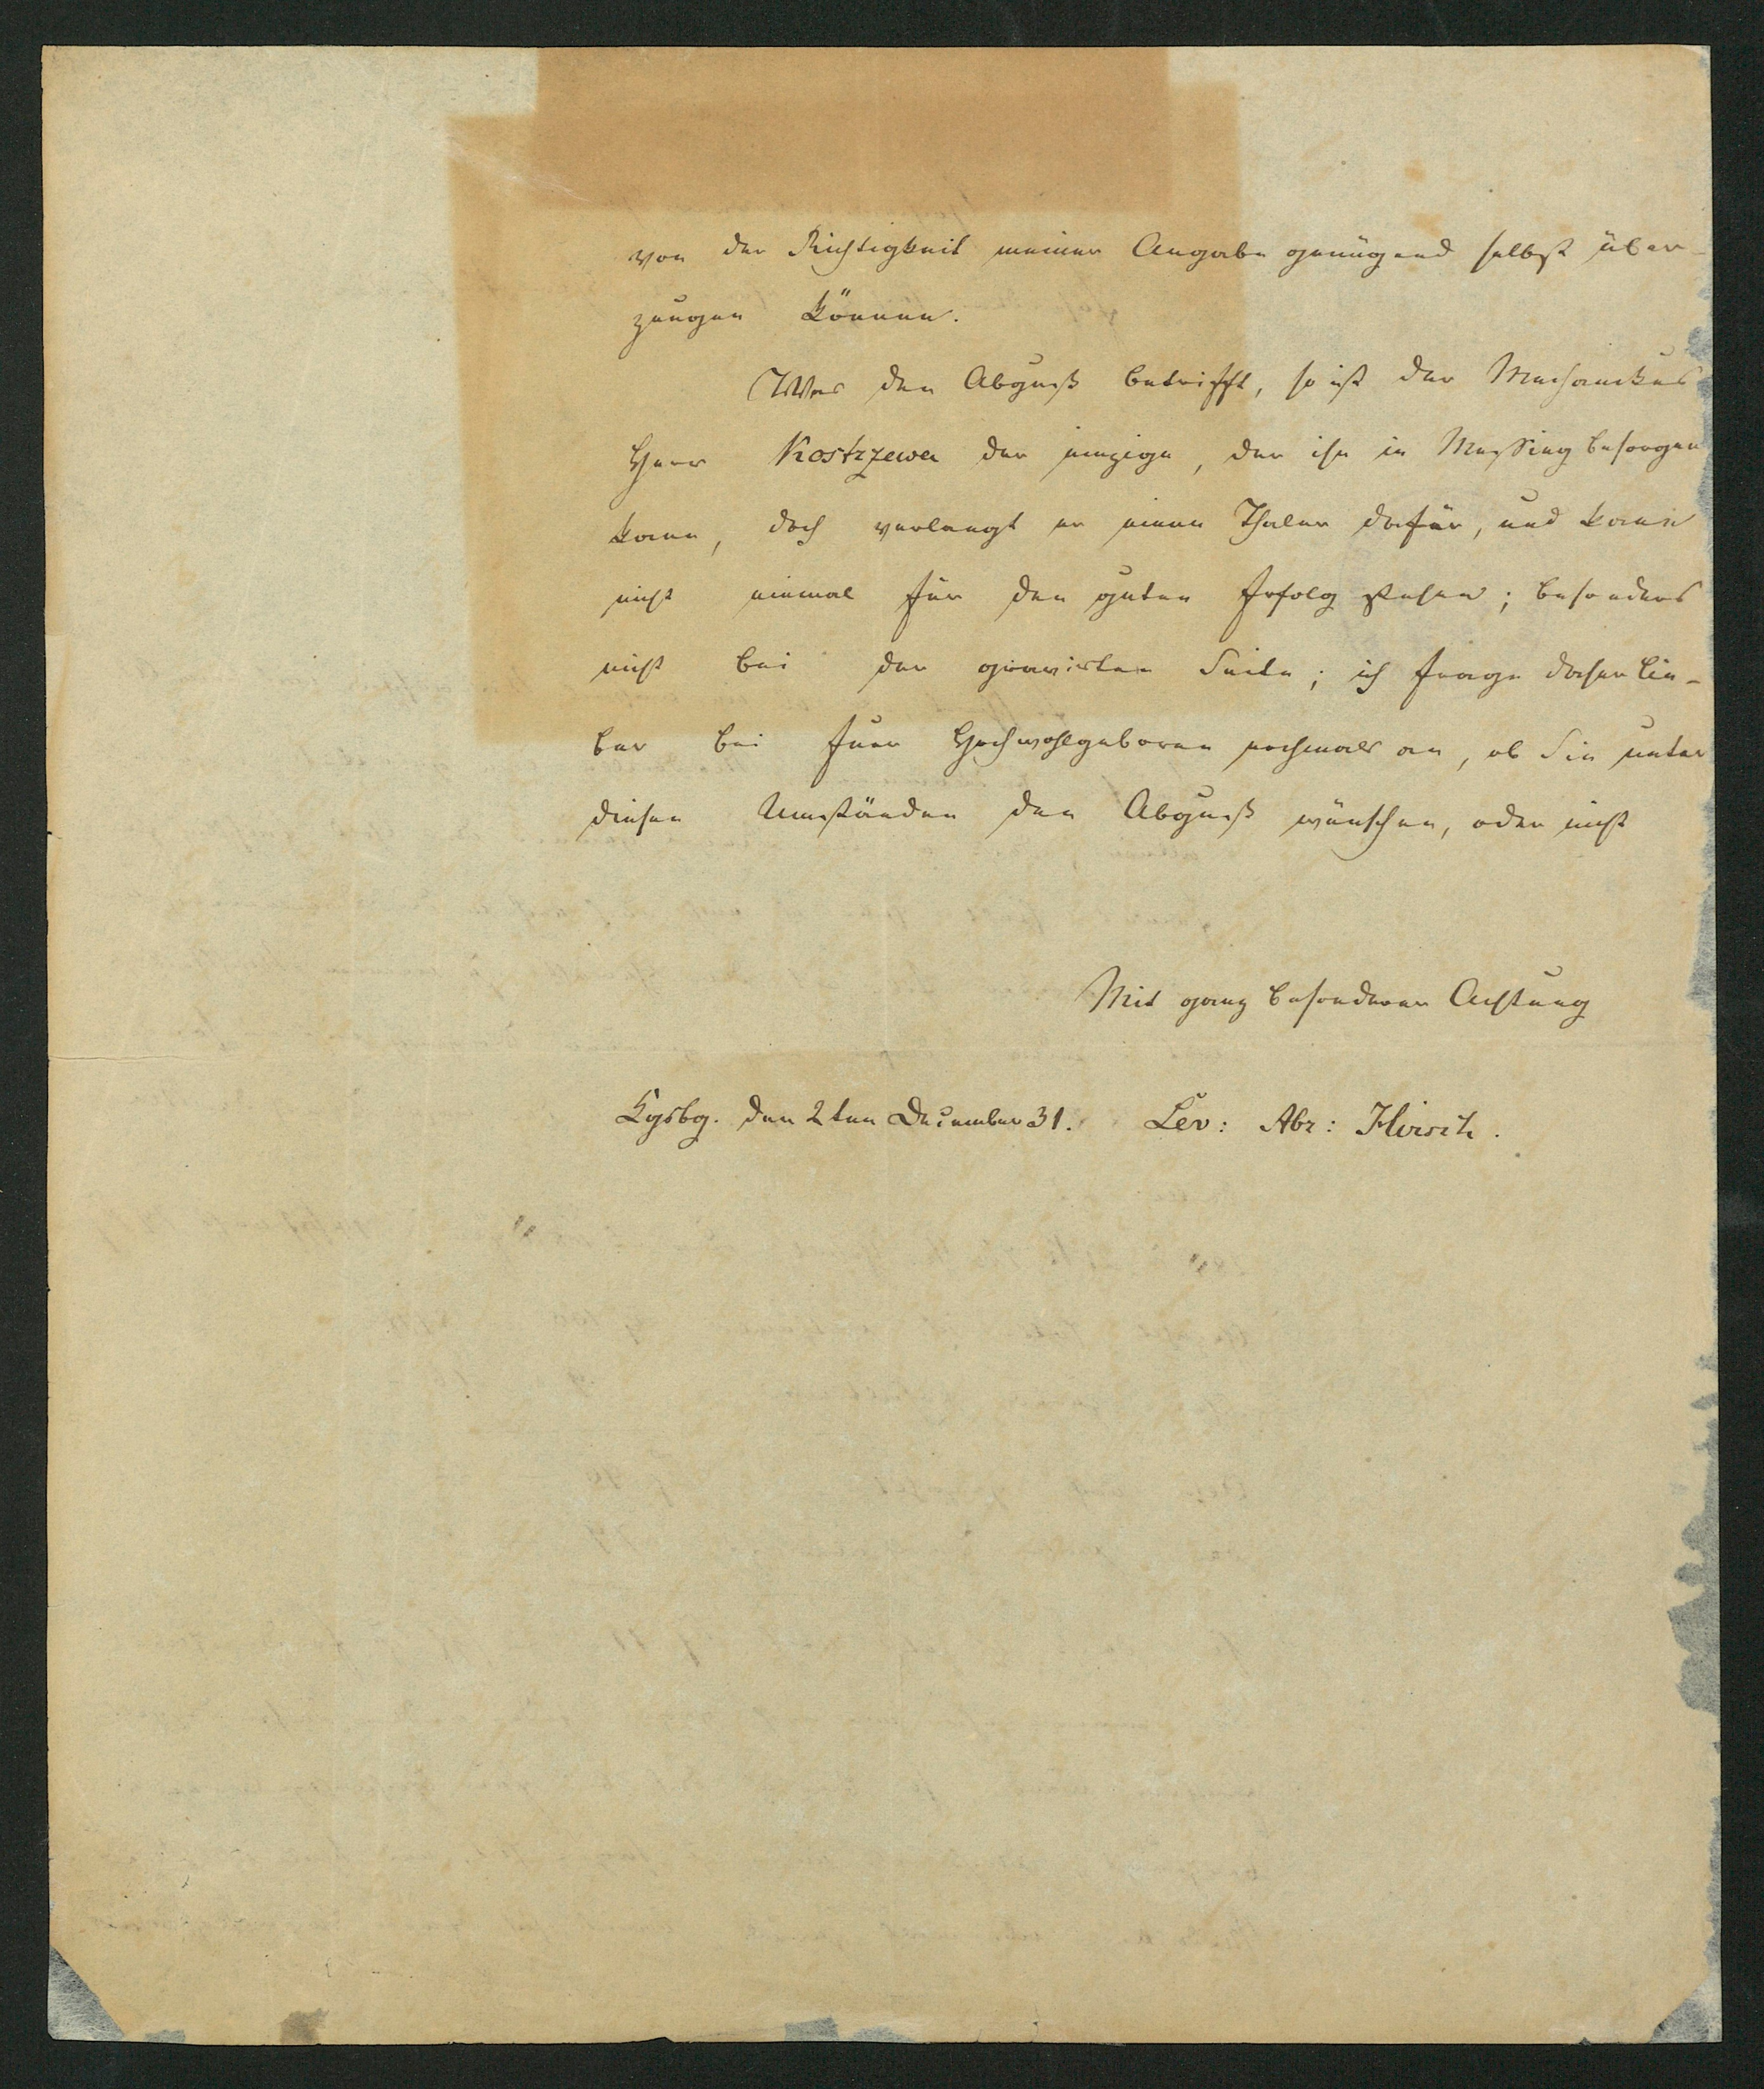 von der Richtigkeit meiner Angabe genügend selbst über-
zeugen können.
Was den Abguß betrifft, so ist der Mechanikus
Herr Kostrzewa der einzige, der ihn in Messing besorgen
kann, doch verlangt er einen Thaler dafür, und kann
nicht einmal für den guten Erfolg stehen; besonders
nicht bei der gravirten Seite; ich frage daher lie-
ber bei Euer Hochwohlgeboren nochmals an, ob Sie unter
diesen Umständen den Abguß wünschen, oder nicht
Mit ganz besonderer Achtung
Kgsbg. den 2ten December 31. Lev: Abr: Hirsch.